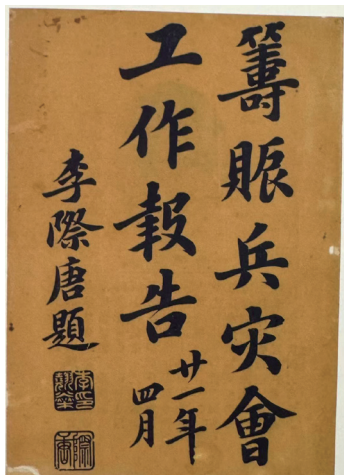 籌賑兵灾會
工作報告
廿一年
四月
李際唐題